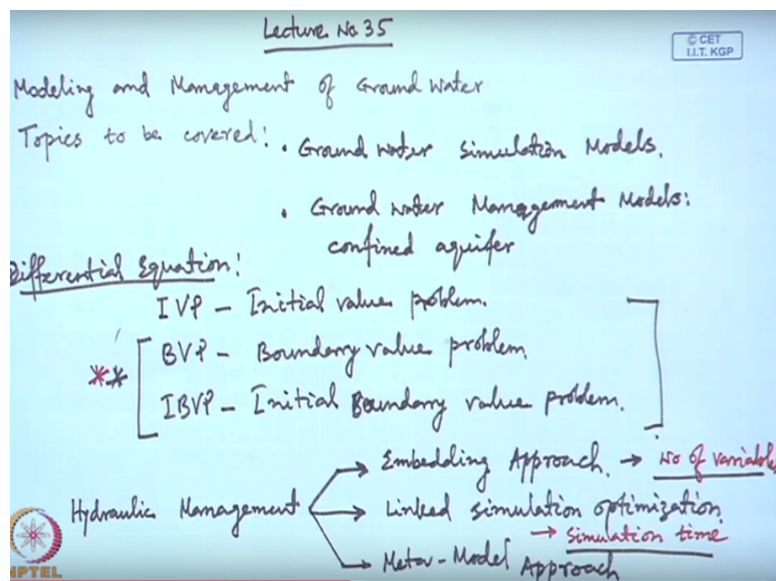 Lecture No. 35
© CET
I.I.T. KGP
Modeling and Management of Ground Water
Topics to be covered: • Ground water simulation Models.
• Ground water Management Models:
confined aquifer
Differential Equation:
IVP – Initial value problem.
** BVP – Boundary value problem.
IBVP – Initial Boundary value problem.
Embedding Approach. → No of variables
Hydraulic Management → Linked simulation optimization
→ Simulation time
Meta-Model Approach
NPTEL